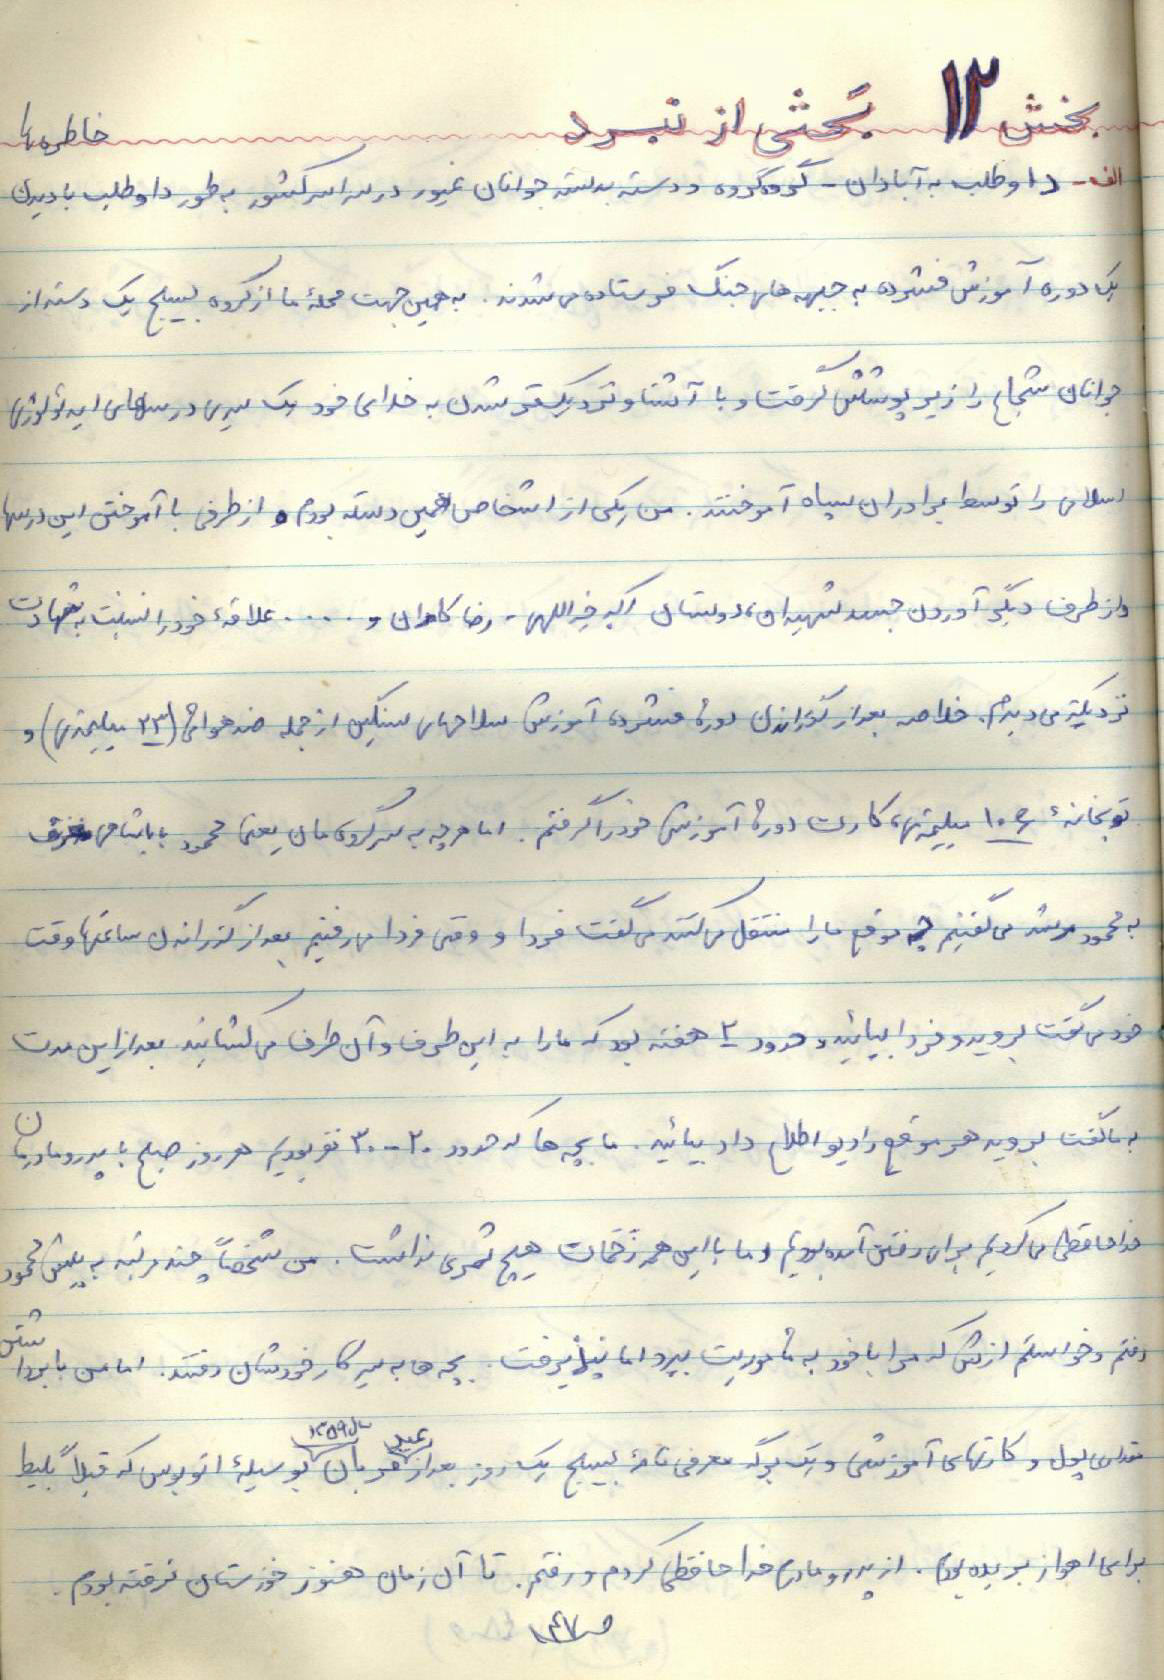 بخش ۱۳ بخشی از نبرد خاطره‌ها
الف - داوطلب به آبادان - گروه گروه و دسته به دسته جوانان غیور در سراسر کشور به طور داوطلب با دیدن
یک دوره آموزش فشرده به جبهه های جنگ فرستاده می شدند. به همین جهت محلهٔ ما از گروه بسیج یک دسته از
جوانان شجاع را زیر پوشش گرفت و با آشنا و نزدیکتر شدن به خدای خود یک سری درسهای ایدئولوژی
اسلامی را توسط برادران سپاه آموختند. من یکی از اشخاص همین دسته بودم و از طرفی با آموختن این درسها
و از طرف دیگر آوردن جسد شهیدان، دوستان اکبر خیراللهی - رضا کامران و .... علاقهٔ خود را نسبت به شهادت
نزدیکتر می دیدم. خلاصه بعد از گذراندن دورهٔ فشردهٔ آموزش سلاحهای سنگین از جمله ضد هوائی (۲۳ میلیمتری) و
توپخانهٔ ۱۰۶ میلیمتری، کارت دورهٔ آموزش خود را گرفتم. اما هر چه به سرگروه مان یعنی محمود باباشاهی
به محمود می گفتیم چه موقع ما را منتقل می کنند می گفت فردا و وقتی فردا می رفتیم بعد از گذراندن ساعتها وقت
خود می گفت بروید و فردا بیائید و حدود ۲ هفته بود که ما را به این طرف و آن طرف می کشانید. بعد از این مدت
به ما گفت بروید هر موقع رادیو اطلاع داد بیائید. ما بچه ها که حدود ۲۰-۳۰ نفر بودیم هر روز صبح با پدر و مادرمان
خداحافظی می کردیم برای رفتن آمده بودیم اما با این همه زحمات هیچ ثمری نداشت. من شخصاً چند مرتبه به پیش محمود
رفتم و خواستم ازش که مرا با خود به مأموریت ببرد اما نپذیرفت. بچه ها به سر کار خودشان رفتند. اما من با برداشتن
مقداری پول و کارتهای آموزشی و یک برگه معرفی نامهٔ بسیج یک روز بعد از عید قربان سال ۱۳۵۹ بوسیلهٔ اتوبوس که قبلاً بلیط
برای اهواز بریده بودم. از پدر و مادرم خداحافظی کردم و رفتم. تا آن زمان هنوز خوزستان نرفته بودم.
ص ۱۴۷